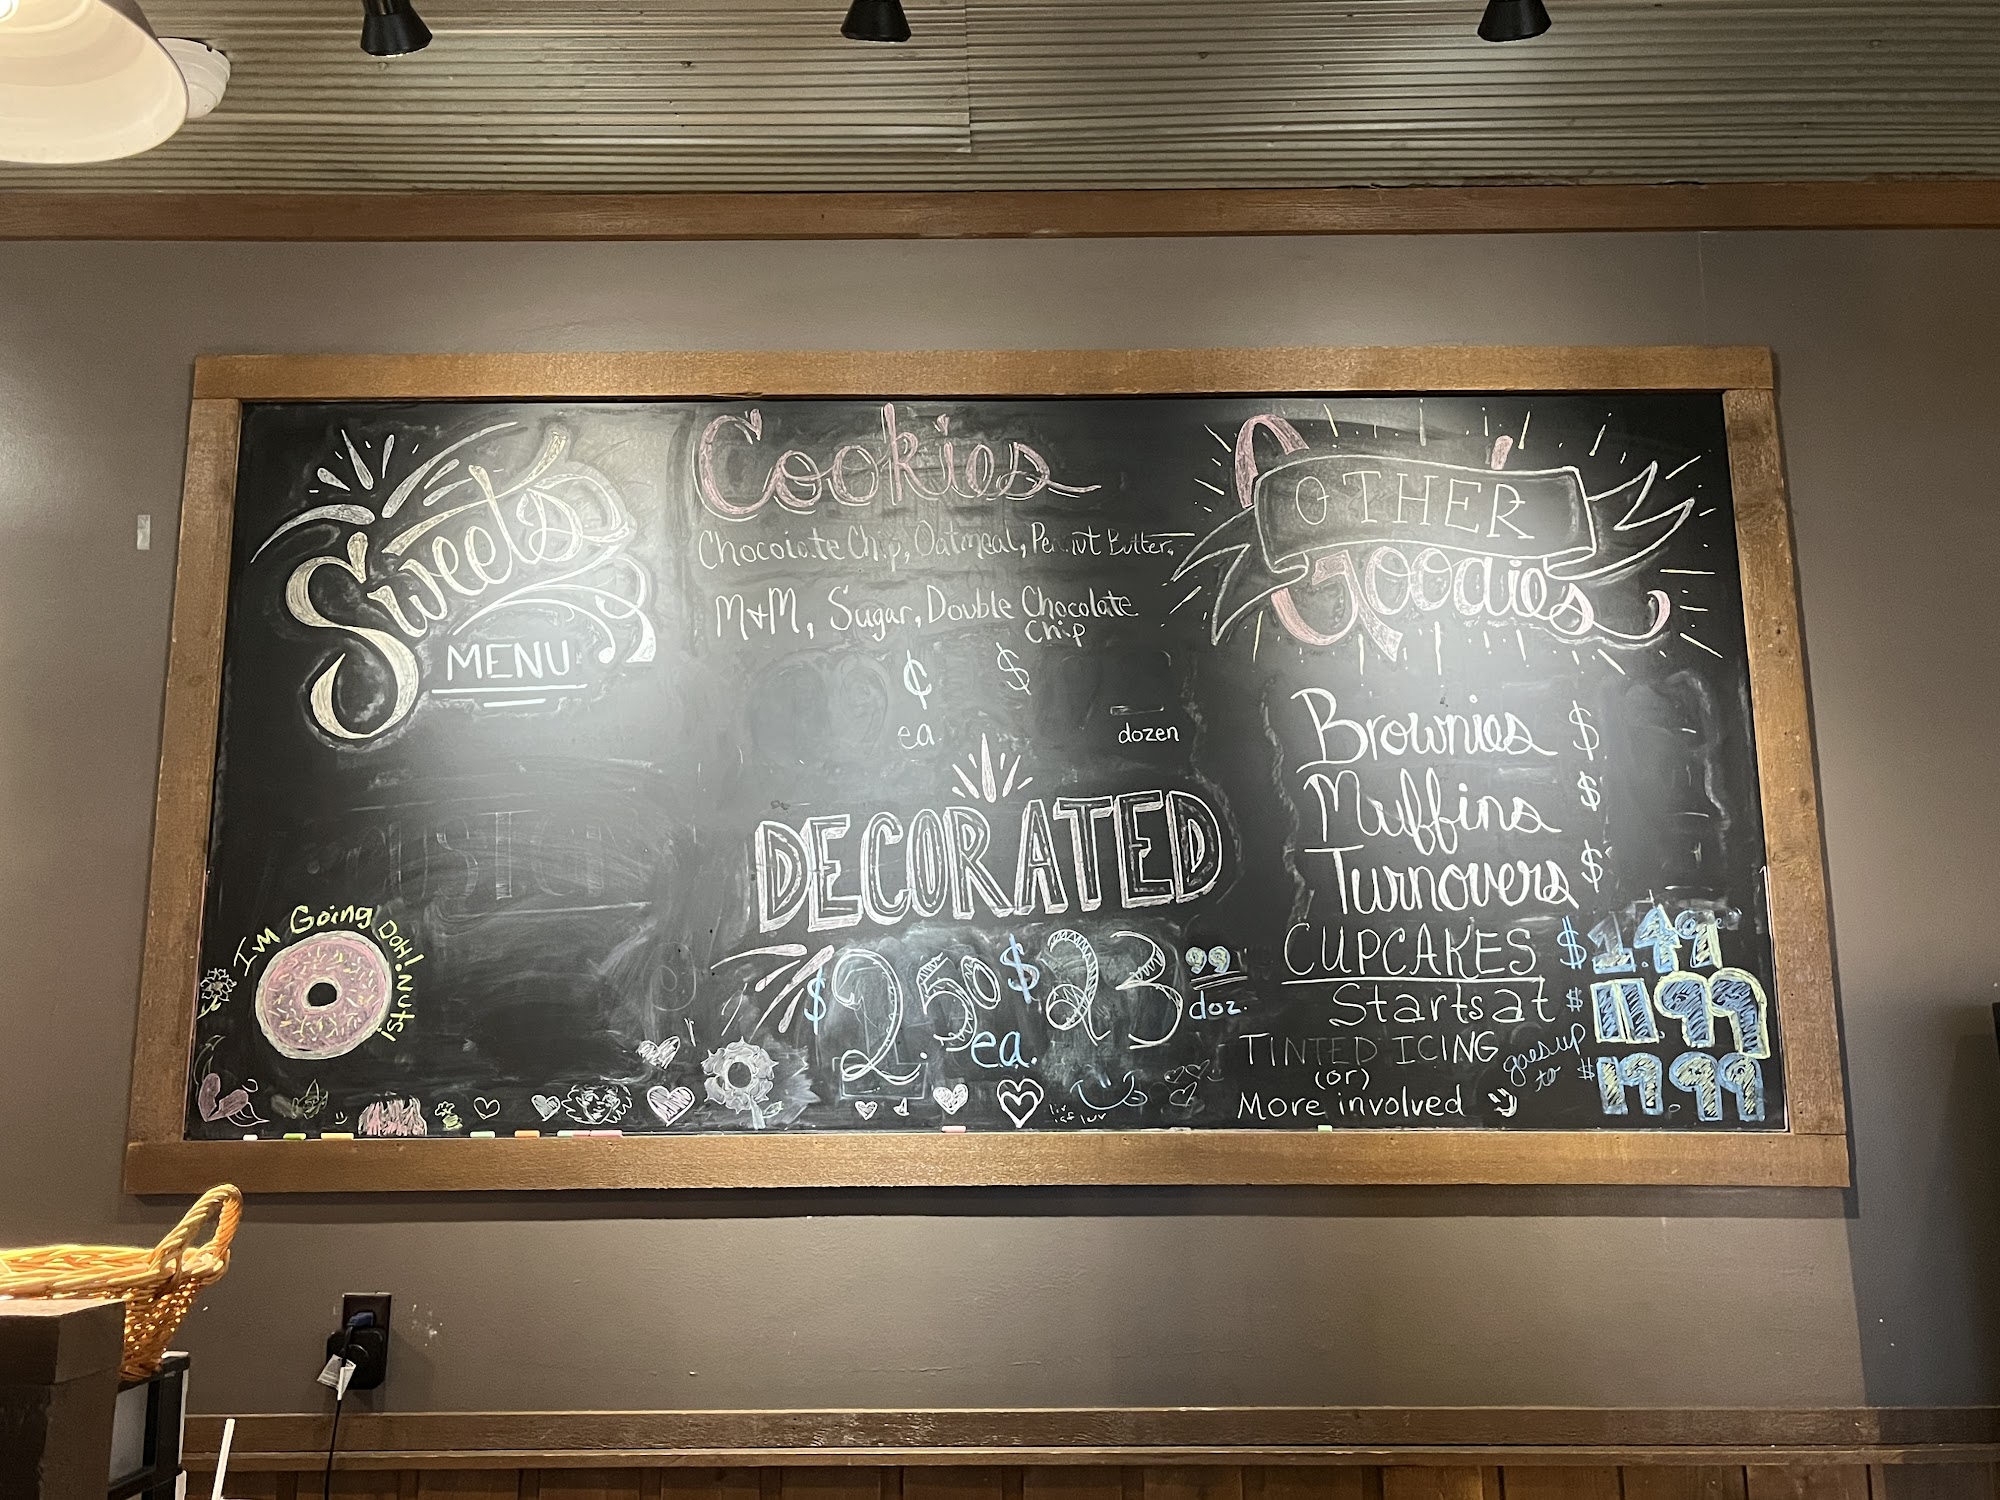 Sweets
MENU
I'm Going DOH! Nuts!
Cookies
Chocolate Chip, Oatmeal, Peanut Butter,
M+M, Sugar, Double Chocolate
Chip
¢ $
ea. dozen
DECORATED
$2.50 $23.99
ea. doz.
OTHER
Goodies
Brownies $
Muffins $
Turnovers $
CUPCAKES $1.49
Starts at $11.99
TINTED ICING goes up
(or) to $19.99
More involved